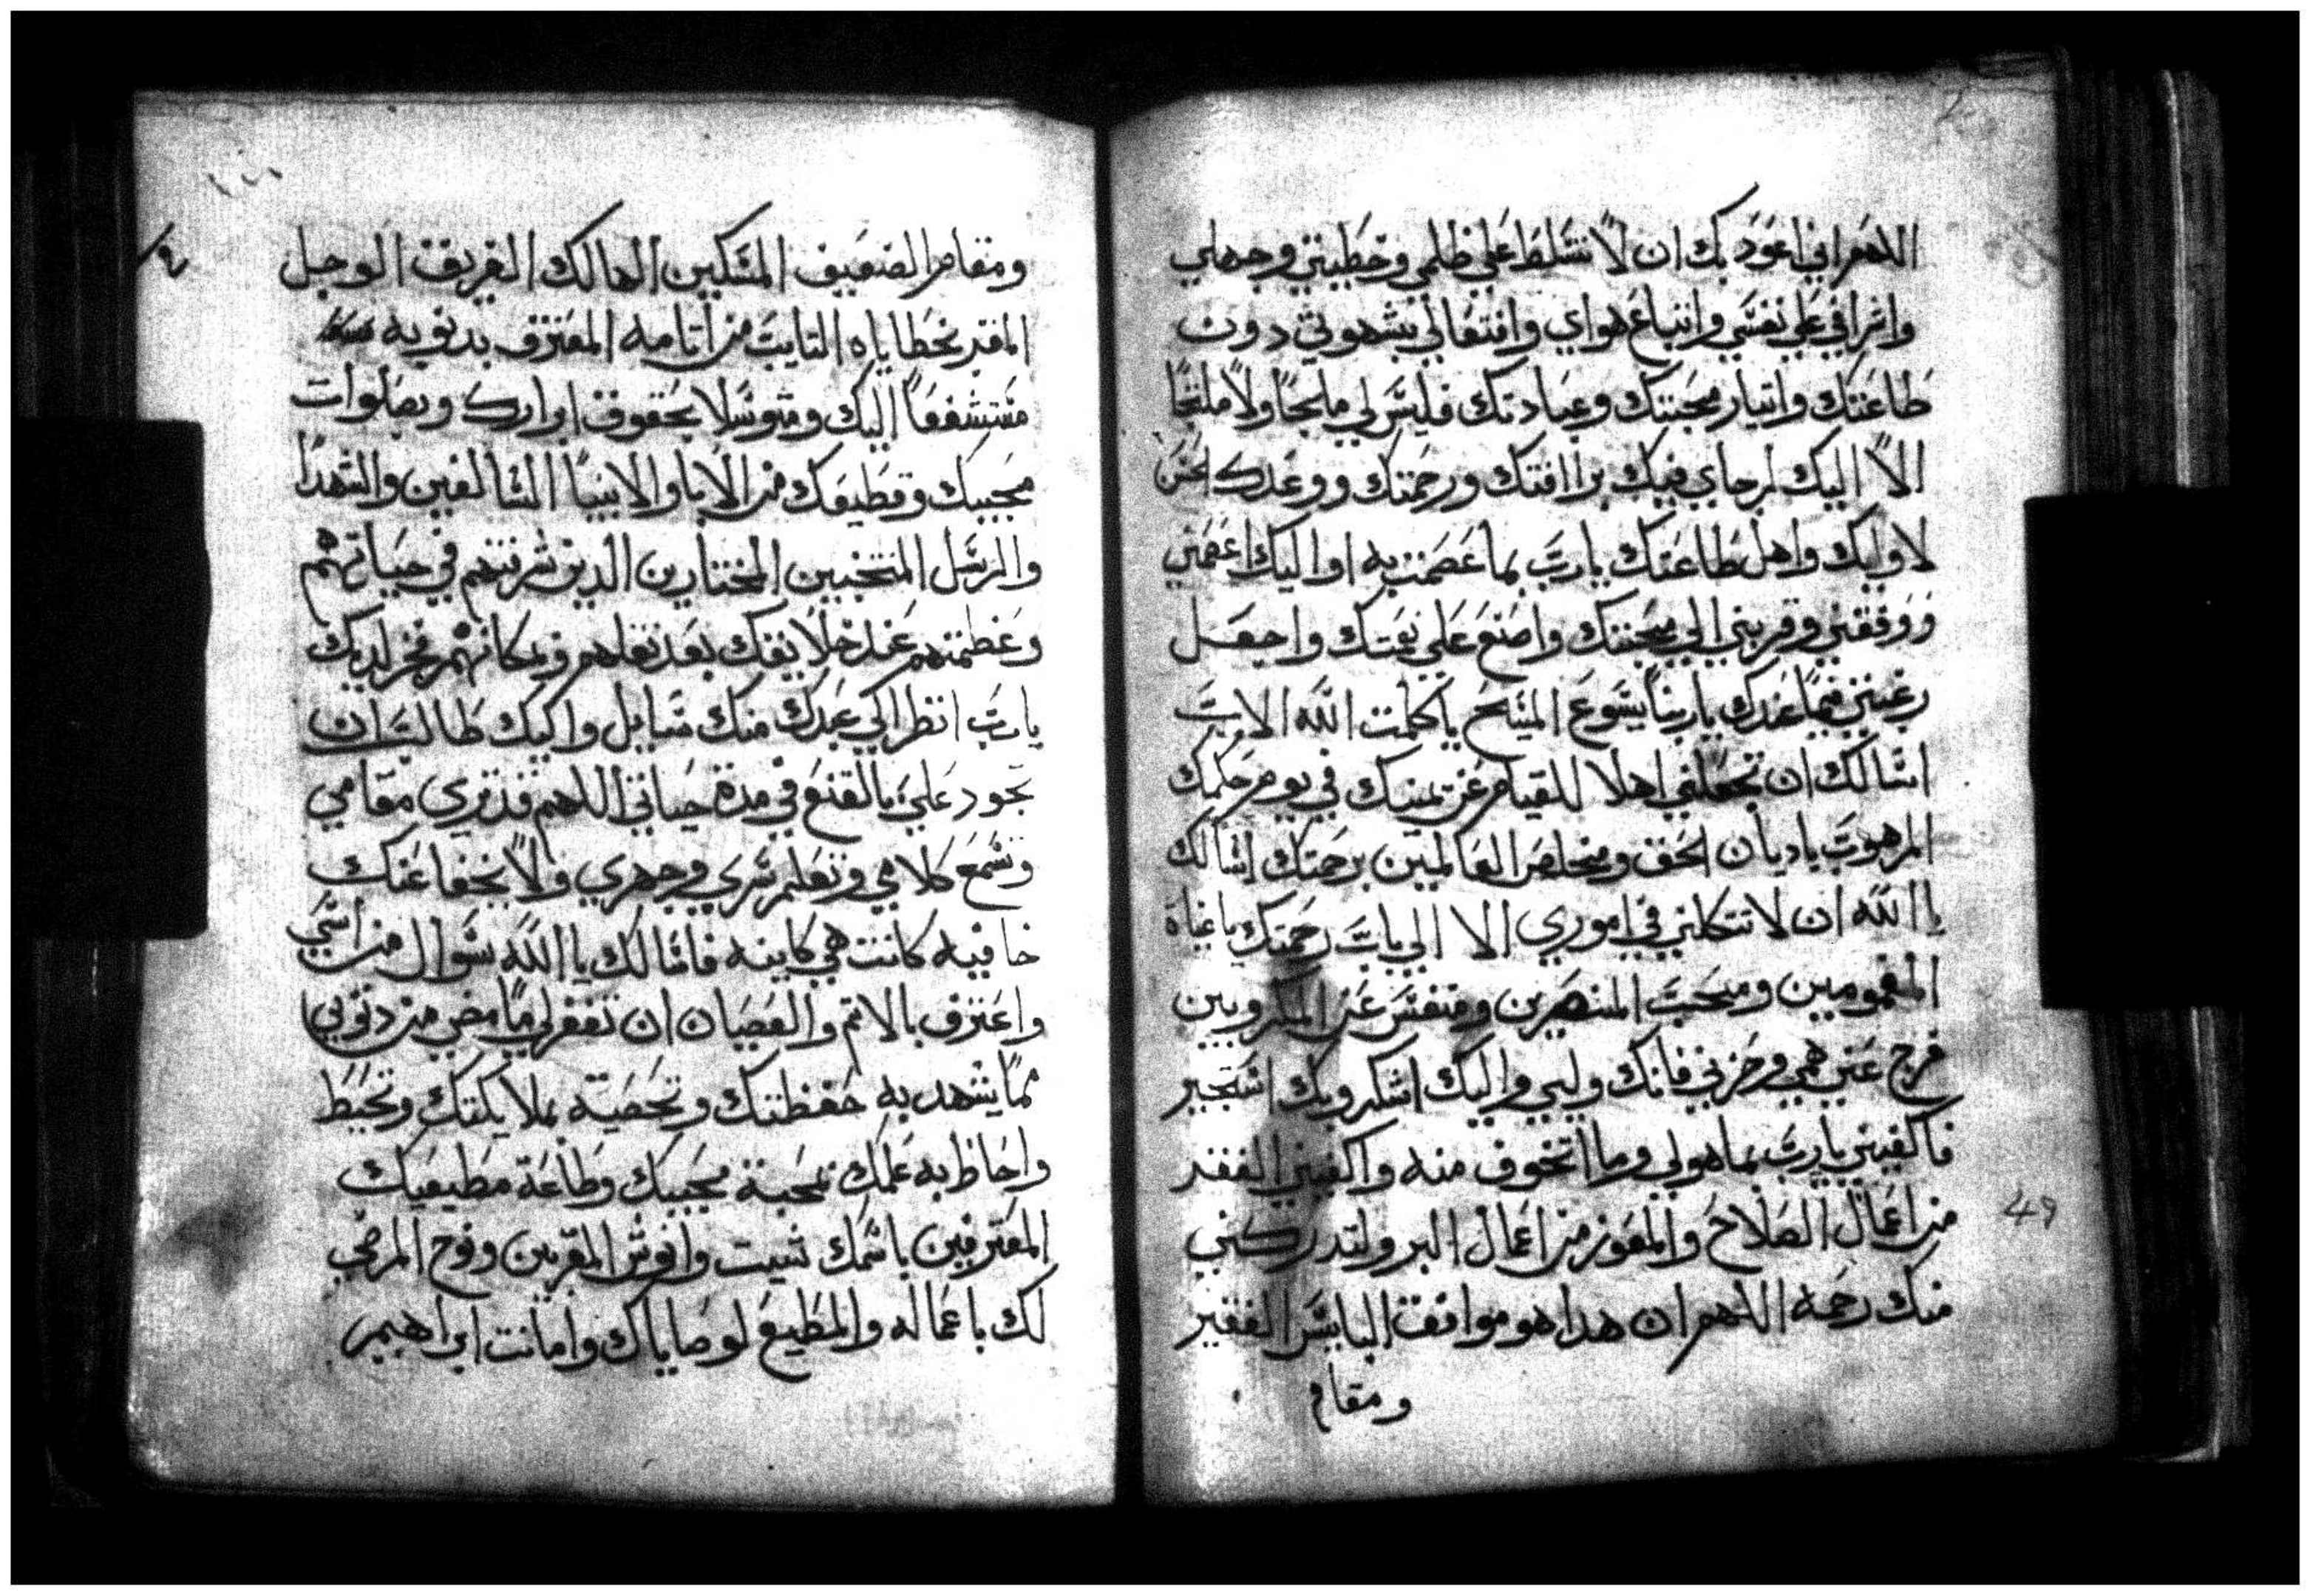 اللهم اني اعود بك ان لا تسلط علي ظلمي وخطيتي وجهلي
واسرافي علي نفسي واتباع هواي واشتغالي بشهوتي دون
طاعتك واتيار محبتك وعبادتك فليس لي ملجاً ولا ملتجاً
الا اليك لرجاي فيك براافتك ورحمتك ووعدك الحسن
لاوليك واهل طاعتك يارب بما عصمت به اواليك اعصمني
ووفقني وقربني الي محبتك واصنع علي نعمتك واجعل
رغبتي فيما عندك ياربنا يسوع المسيح ياكلمت الله الاب
اسالك ان تجعلني اهلا للقيام عن يمينك في يوم حكمك
المرهوب ياديان الحق ومخلص العالمين برحمتك اسالك
يا الله ان لا تتكلني في اموري الا الي باب رحمتك ياغياة
المغمومين ومنفس عن المكروبين
فرج عني همي وحزني فانك وليي واليك اشكر وبك استجير
فاكفيني يارب ماهولي وما اتخوف منه واكفيني الفقر
من اعمال الصلاح والمفوز من اعمال البر ولتدركني
منك رحمه اللهم ان هدا هو مواقف البايس الفقير
ومقام
ومقام الضعيف المسكين الهالك الغريق الوجل
المقر بخطاياه التايب من اتامه المعترف بدنوبه
مستشفعاً اليك ومتوسلا بحقوق ابرارك وبصلوات
محبيك ومطيعك من الابا والانبيا السالفين والشهدا
والرسل المنتخبين المختارين الدين شرفتهم في حياتهم
وعظمتهم عند خلايقك بعد نقلهم لديك
يارب انظر الي عبدك منك سايل واليك طالب ان
تجود علي في مدة حياتي اللهم قد تري مقامي
وتسمع كلامي وتعلم سري وجهري ولا يخفا عنك
خافيه كانت هي كاينه فاسالك يا الله سوال من اسي
واعترف بالاتم والعصيان ان تغفر لي ما مضي من دنوبي
مما يشهد به حفظتك وتحصيه ملايكتك وتحيط
واحاط به علمك محبة محبيك وطاعة مطيعيك
المعترفين باسمك شيت وانوش المقربين ونوح المرضي
لك باعماله والمطيع لوصاياك وامانت ابراهيم
49